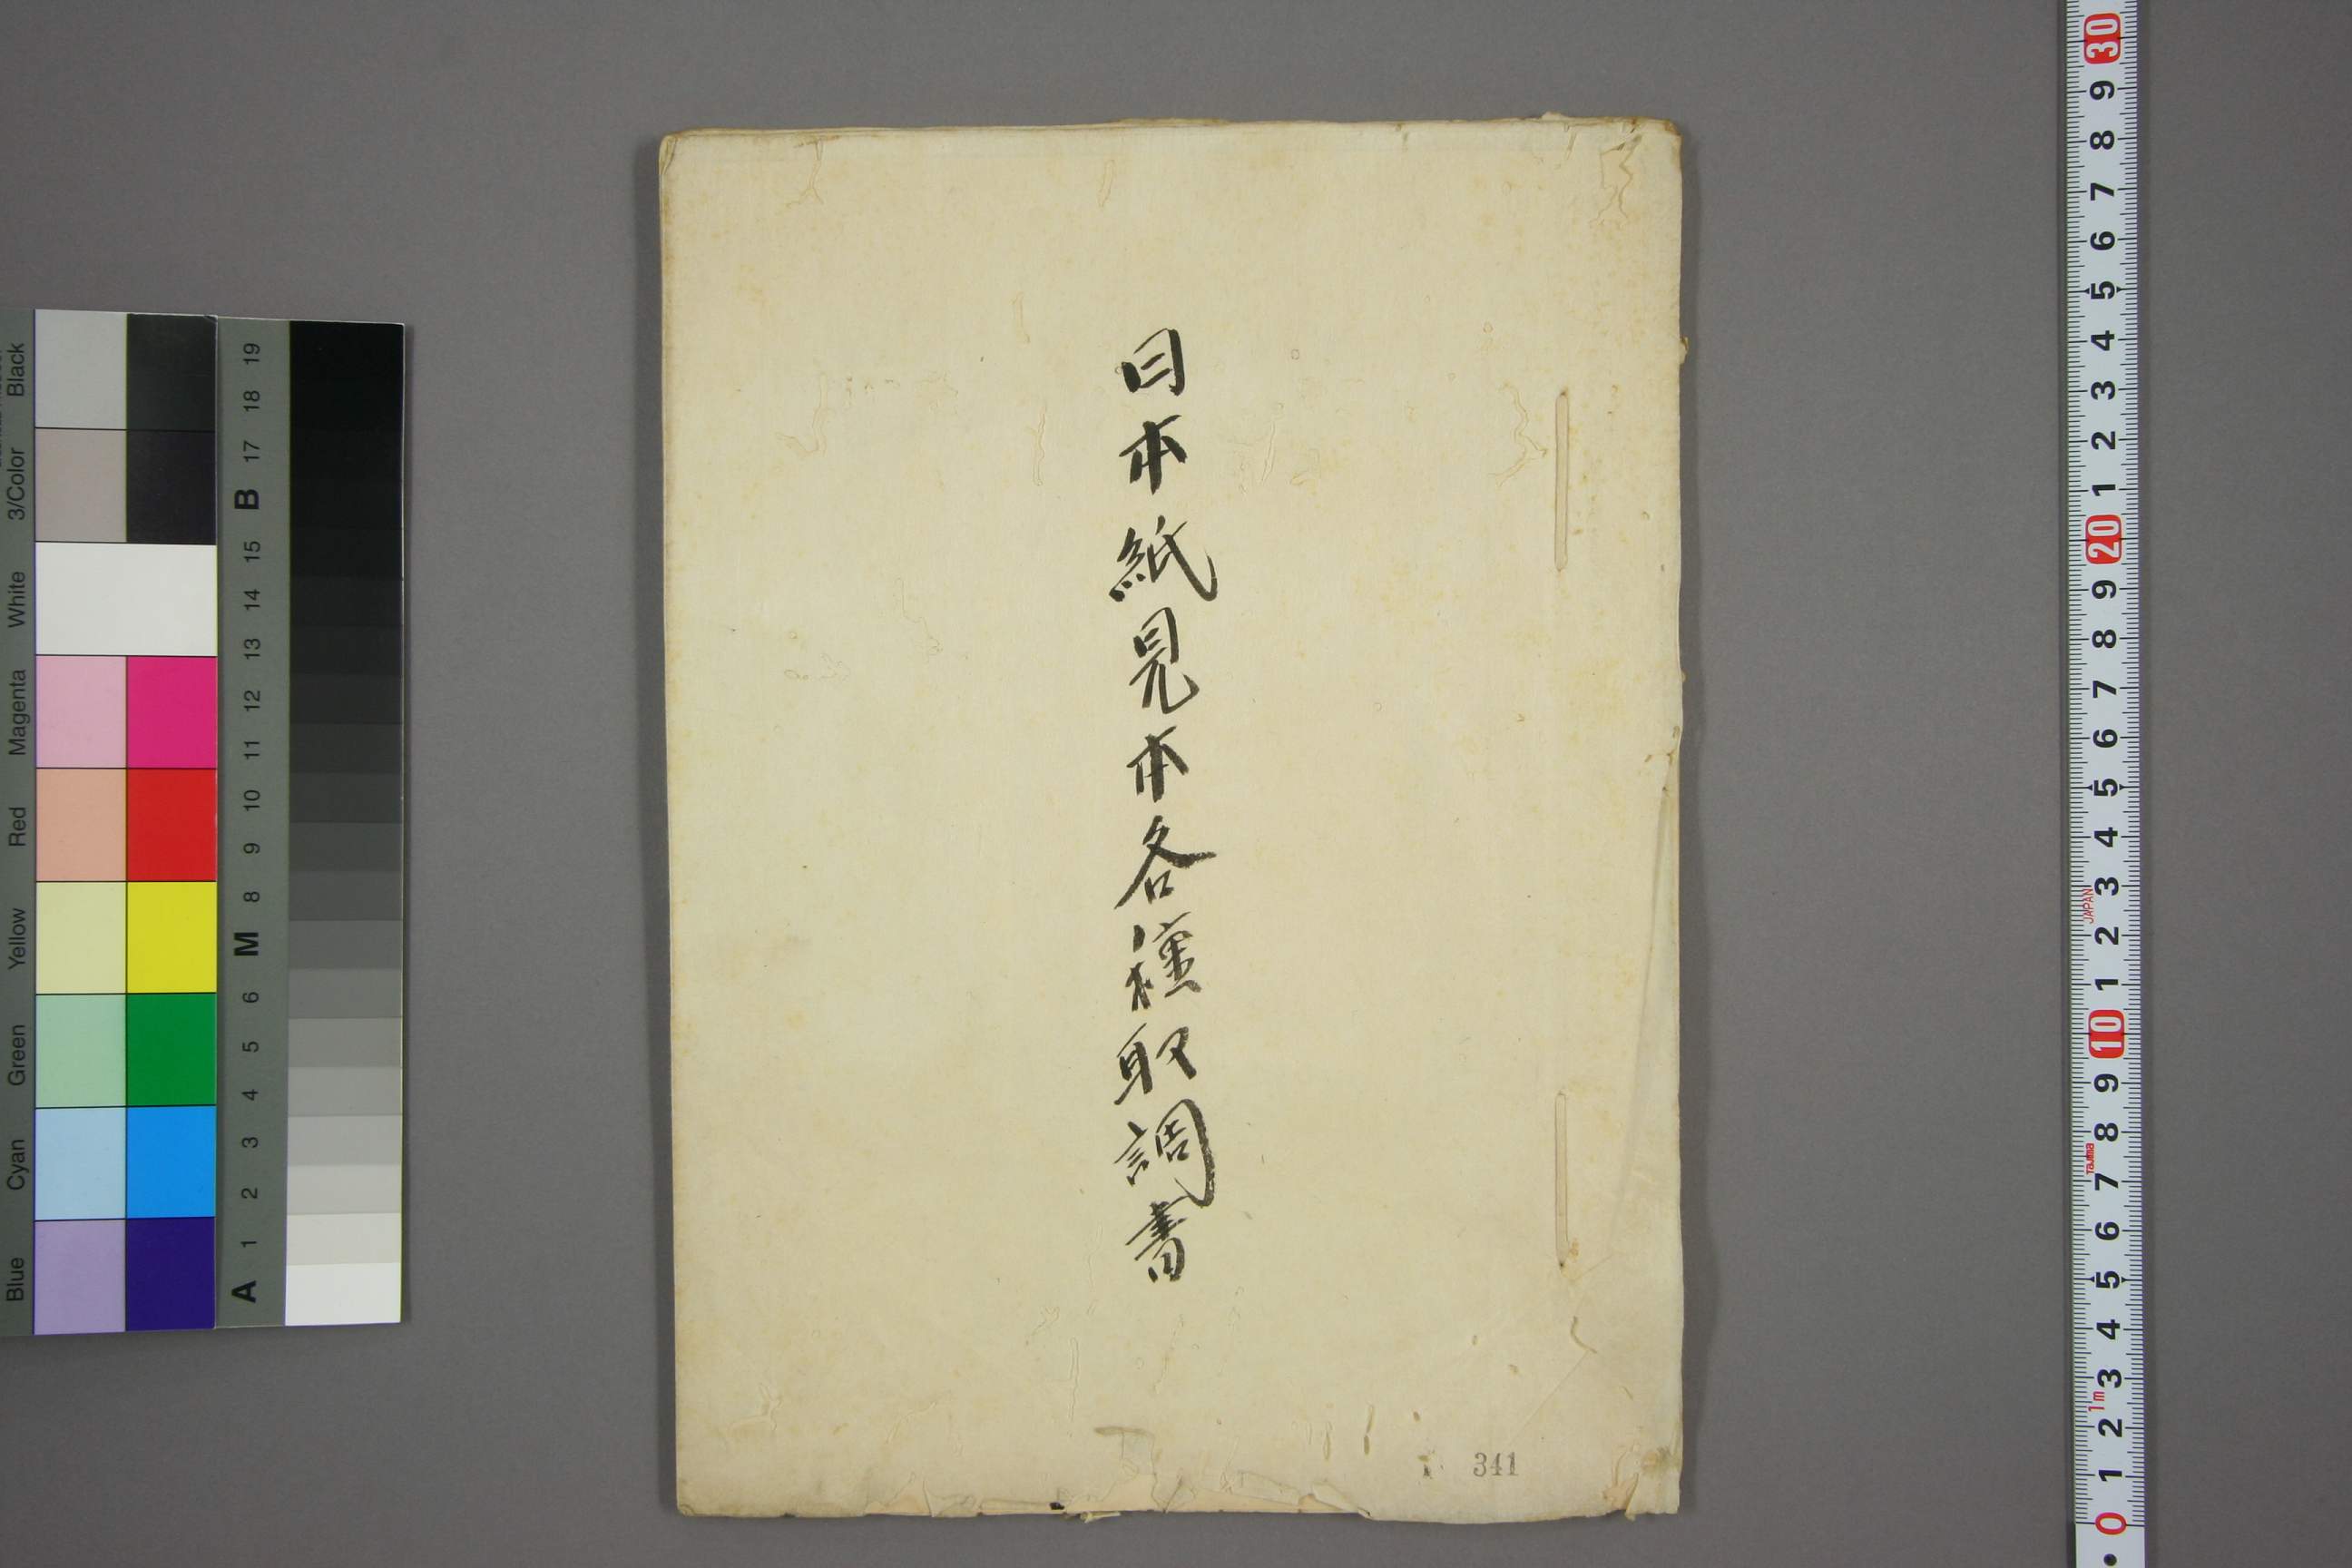 日本紙見本各種取調書
341
Black
3/Color
White
Magenta
Red
Yellow
Green
Cyan
Blue
19
18
17
B
15
14
13
12
11
10
9
8
M
6
5
4
3
2
1
A
30
9
8
7
6
5
4
3
2
1
20
9
8
7
6
5
4
3
JAPAN
2
1
10
9
8
Tajima
7
6
5
4
3
1m
2
1
0